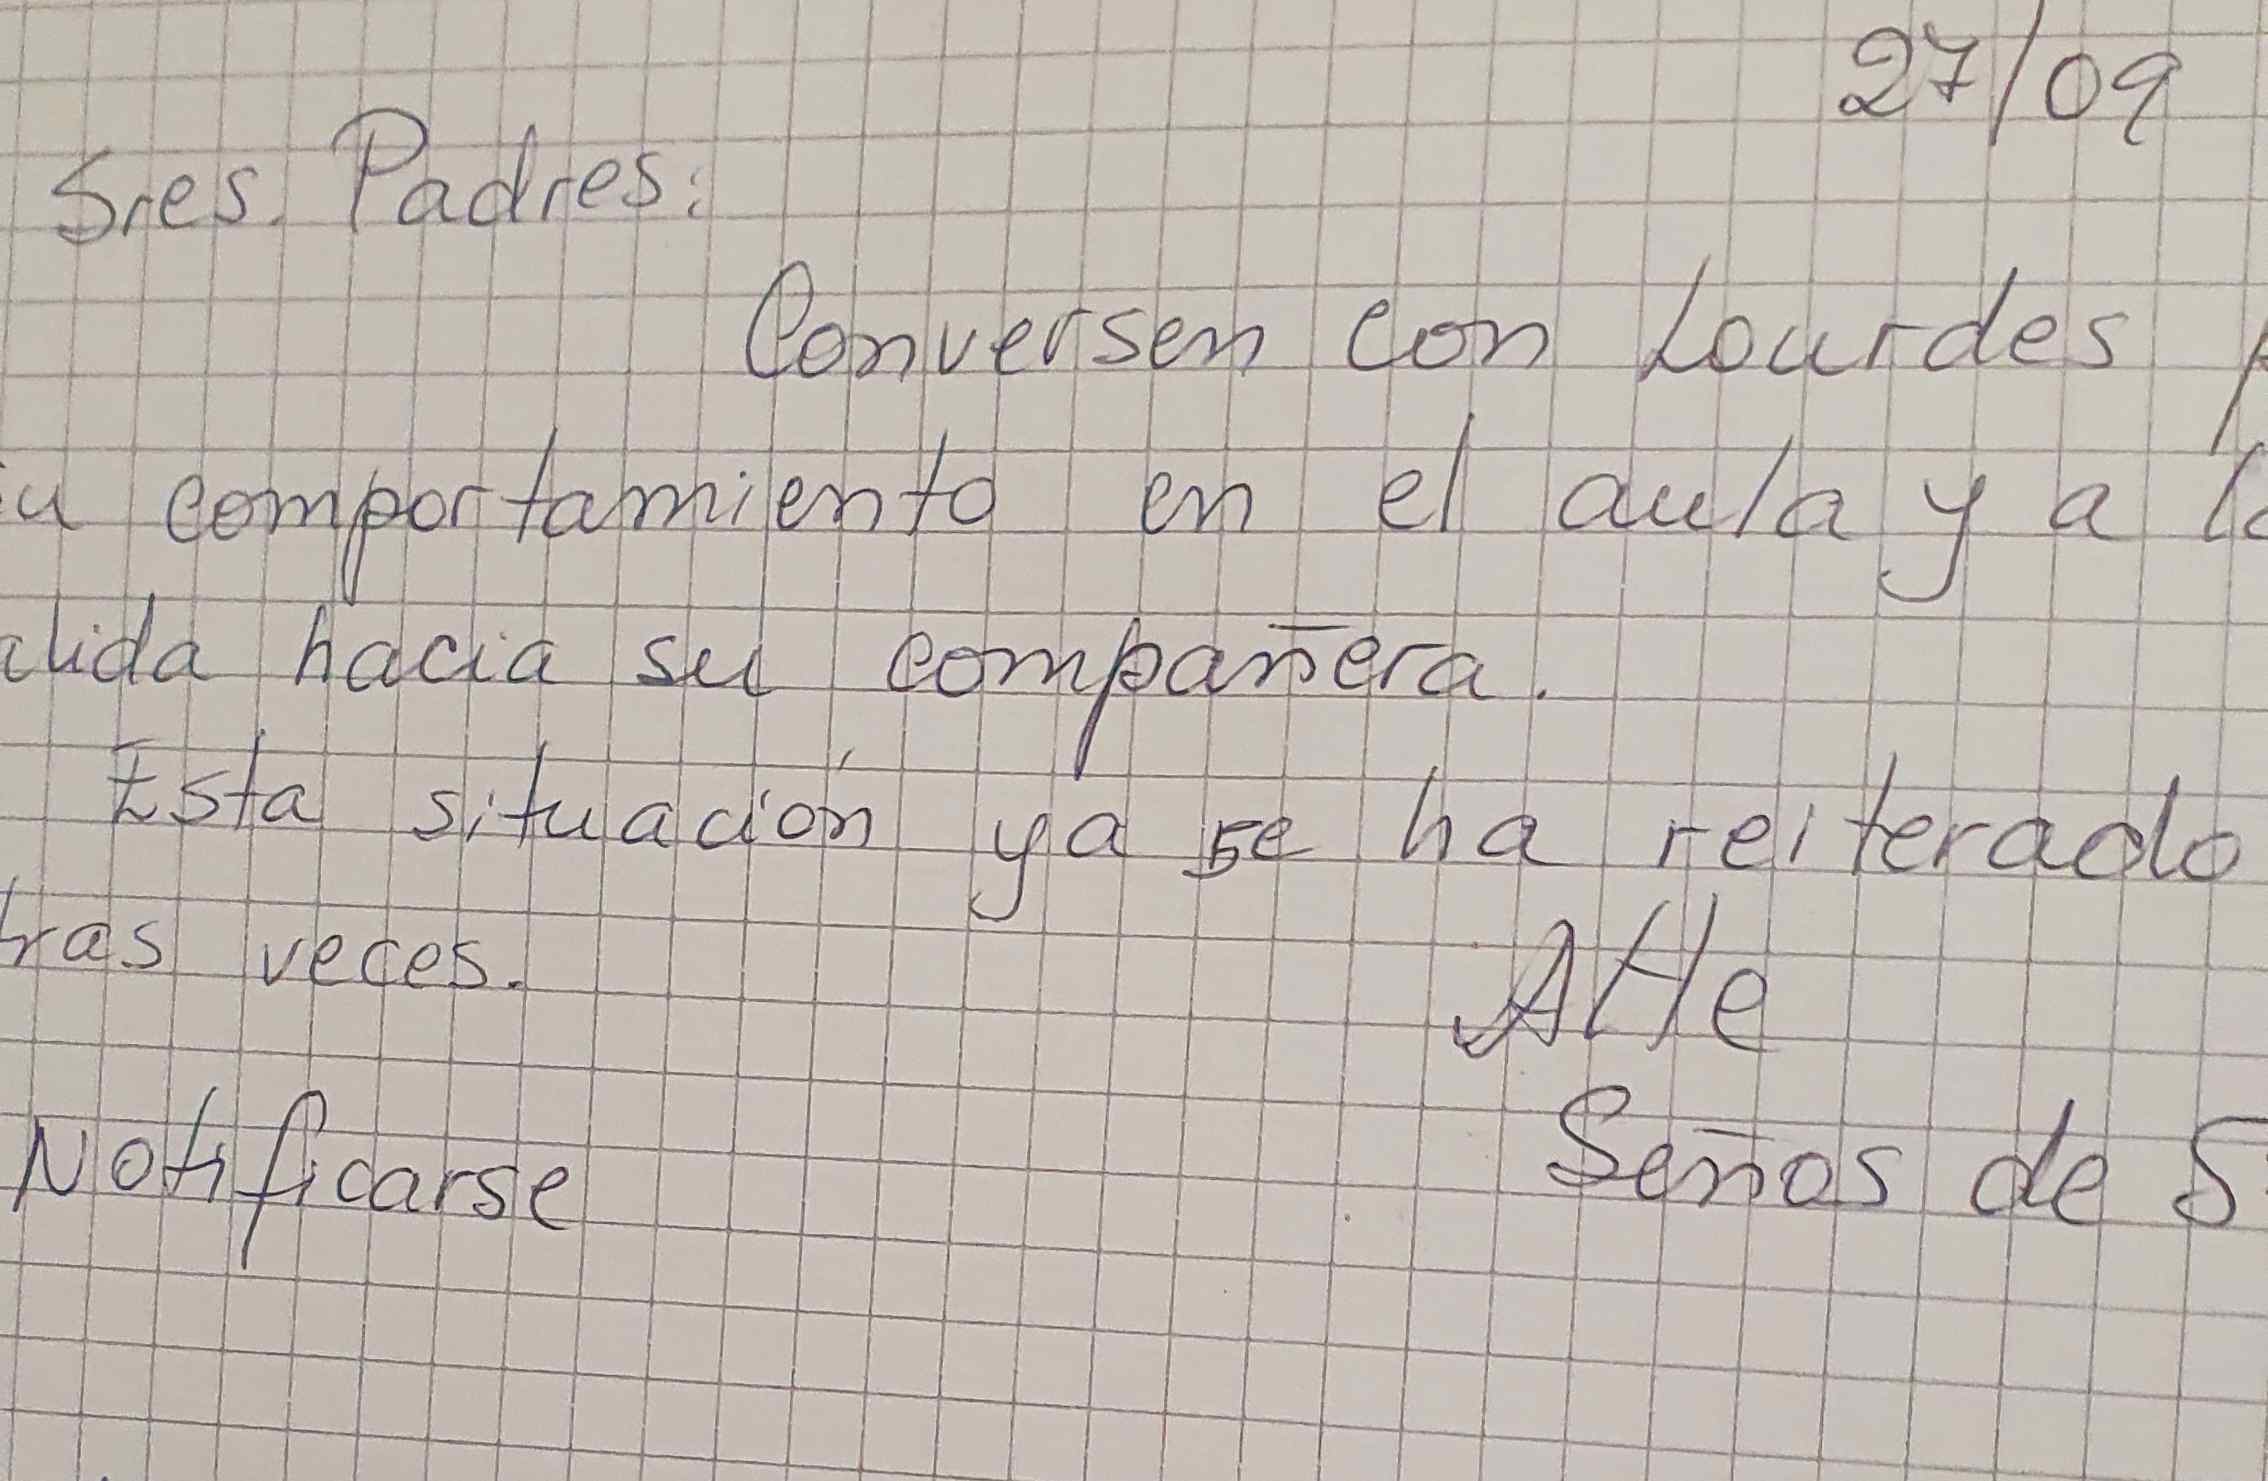 27/09
Sres. Padres:
Conversen con Lourdes
comportamiento en el aula y a
hacia su compañera.
Esta situación ya se ha reiterado
veces.
Atte
Notificarse
Seños de 5